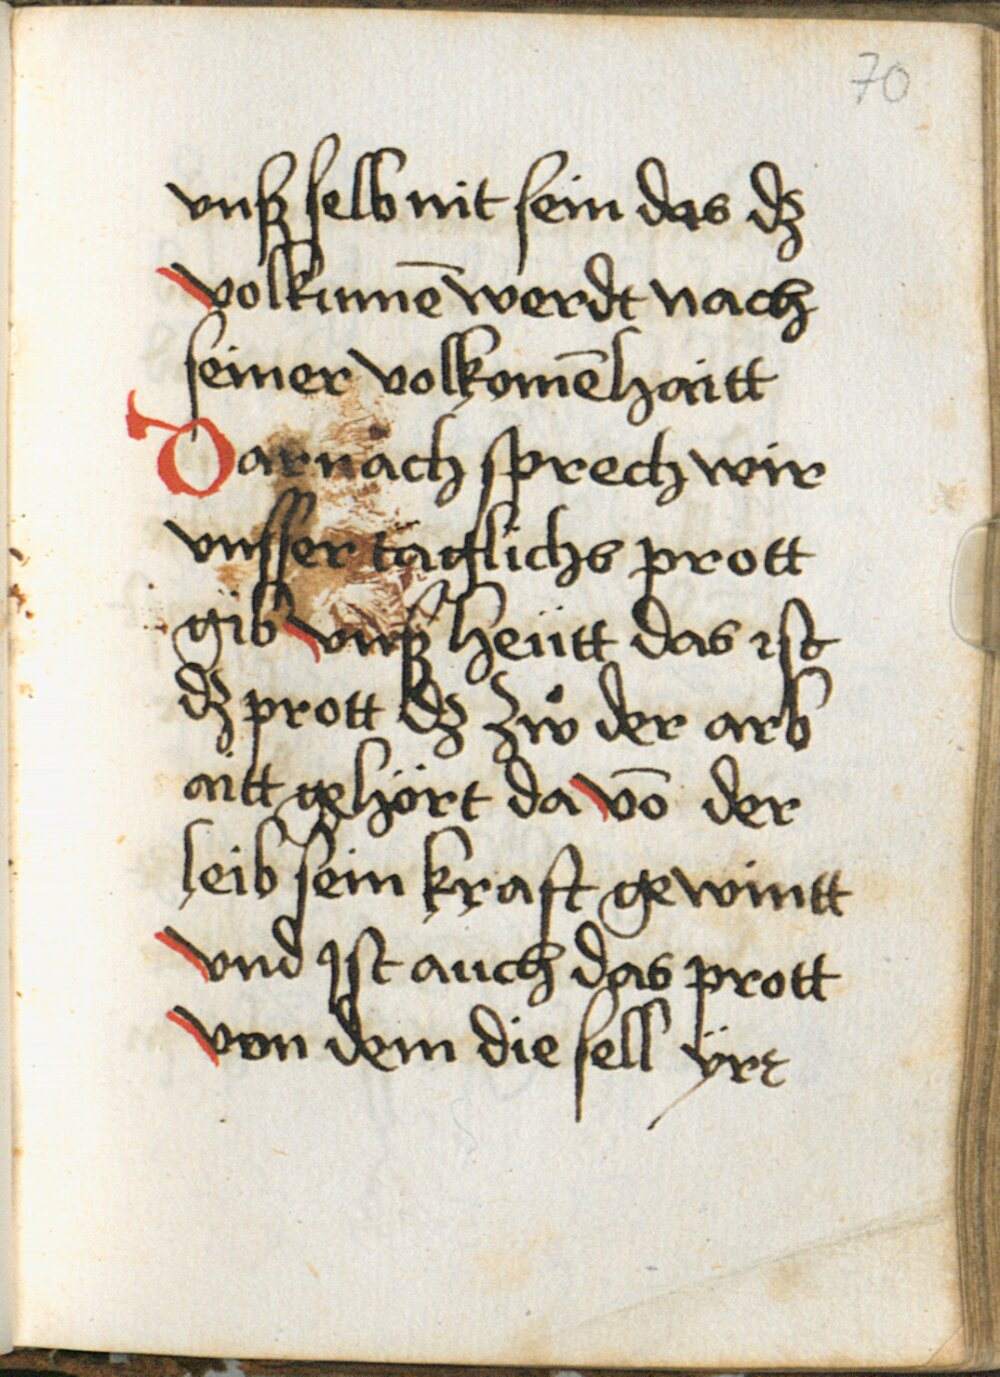 70
vnß selb nit sein das dz
volkumē werdt nach
seiner volkomēhaitt
Darnach sprech wir
vnsser taglichs prott
gib vnß heütt das ist
dz prott dz zů der arb
aitt gehört da vō der
leib sein kraft gewintt
vnd ist auch das prott
von dem die sell ÿre